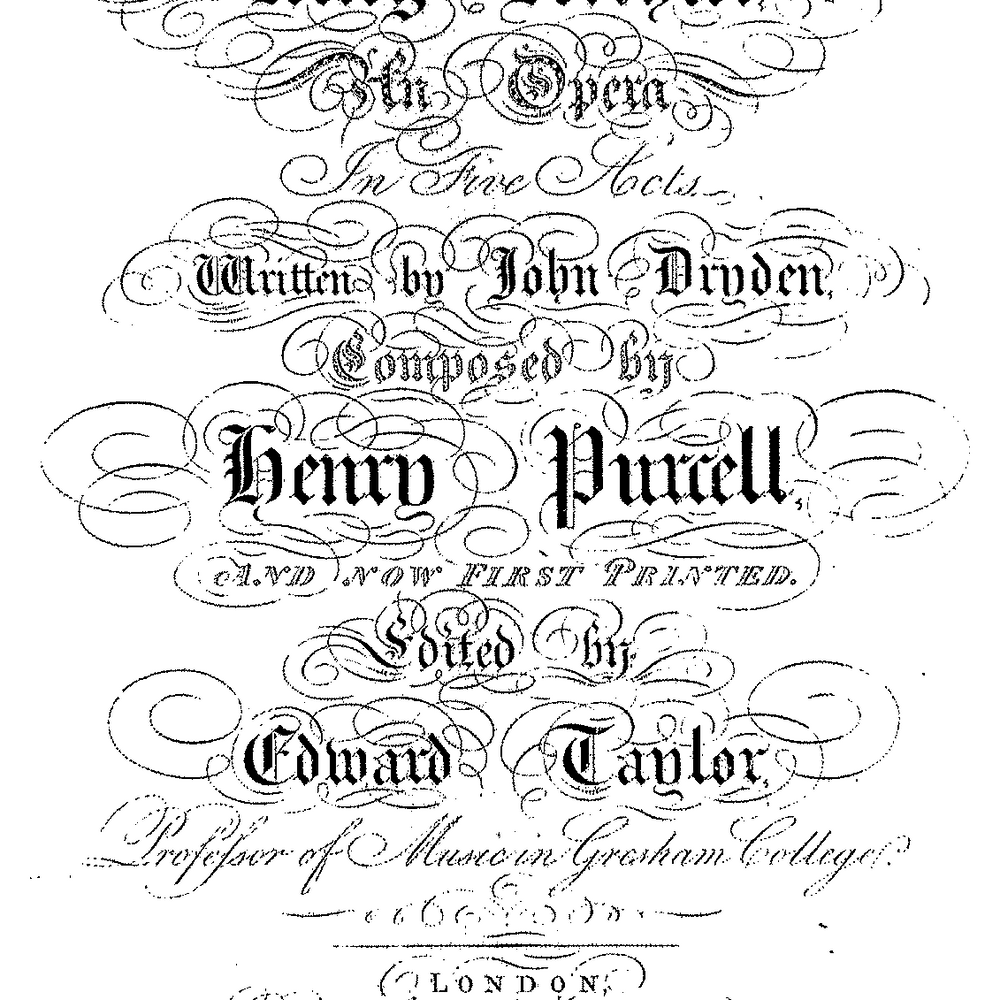 An Opera
In Five Acts.
Written by John Dryden,
Composed by
Henry Purcell,
AND NOW FIRST PRINTED.
Edited by
Edward Taylor,
Professor of Music in Gresham College.
LONDON,